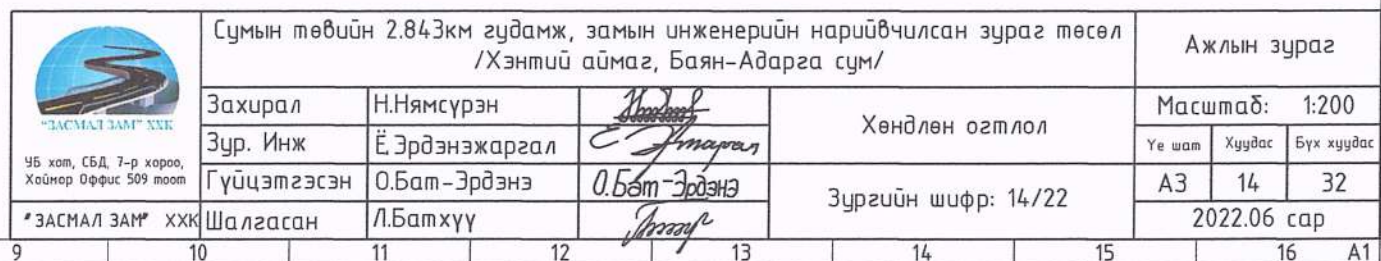 "ЗАСМАЛ ЗАМ" ХХК
УБ хот, СБД, 7-р хороо,
Хоймор Оффис 509 тоот
"ЗАСМАЛ ЗАМ" ХХК
Сумын төвийн 2.843км гудамж, замын инженерийн нарийвчилсан зураг төсөл
/Хэнтий аймаг, Баян-Адарга сум/
Ажлын зураг
Захирал Н.Нямсүрэн
Зур. Инж Ё.Эрдэнэжаргал
Гүйцэтгэсэн О.Бат-Эрдэнэ О.Бат-Эрдэнэ
Шалгасан Л.Батхүү
Хөндлөн огтлол
Зургийн шифр: 14/22
Масштаб: 1:200
Үе шат Хуудас Бүх хуудас
А3 14 32
2022.06 сар
9 10 11 12 13 14 15 16 А1